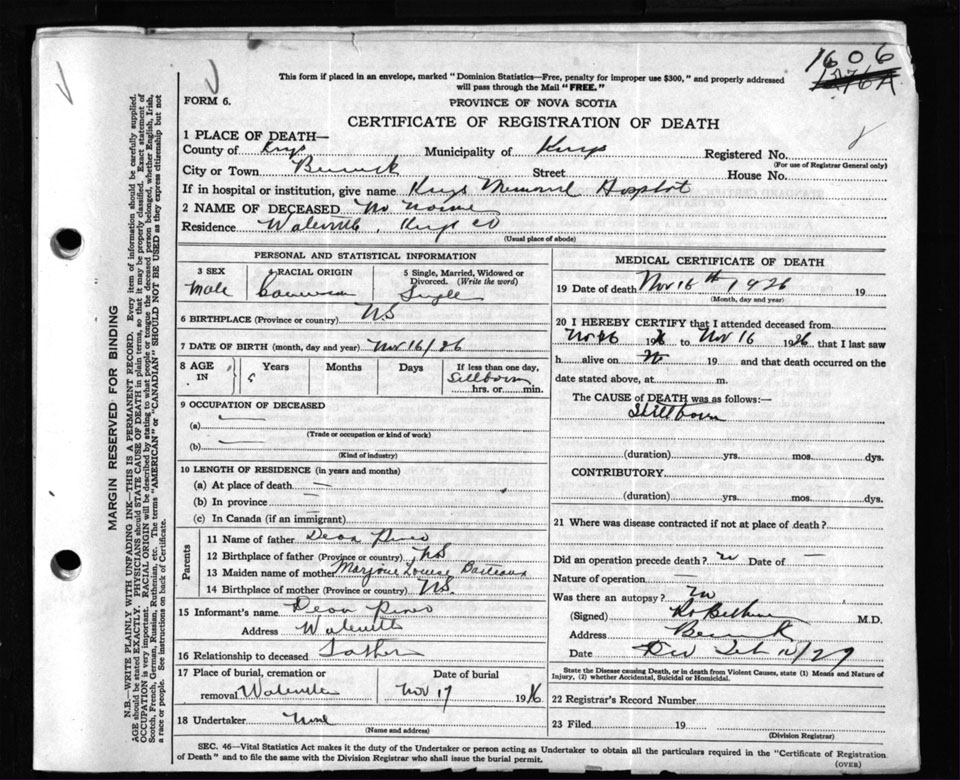 1606
1276A
This form if placed in an envelope, marked "Dominion Statistics—Free, penalty for improper use $300," and properly addressed
will pass through the Mail "FREE."
FORM 6.
PROVINCE OF NOVA SCOTIA
CERTIFICATE OF REGISTRATION OF DEATH
MARGIN RESERVED FOR BINDING
N.B.—WRITE PLAINLY WITH UNFADING INK—THIS IS A PERMANENT RECORD. Every item of information should be carefully supplied.
AGE should be stated EXACTLY. PHYSICIANS should STATE CAUSE OF DEATH in plain terms, so that it may be properly classified. Exact statement of
OCCUPATION is very important. RACIAL ORIGIN will be described by stating to what people or tongue the deceased person belonged, whether English, Irish,
Scotch, French, German, Russian, Ruthenian, etc. The terms "AMERICAN" or "CANADIAN" SHOULD NOT BE USED as they express citizenship but not
a race or people. See instructions on back of Certificate.
1 PLACE OF DEATH—
County of Kings Municipality of Kings Registered No.
(For use of Registrar General only)
City or Town Berwick Street House No.
If in hospital or institution, give name Kings Memorial Hospital
2 NAME OF DECEASED No Name
Residence Waterville, Kings Co
(Usual place of abode)
PERSONAL AND STATISTICAL INFORMATION
3 SEX
Male
4 RACIAL ORIGIN
5 Single, Married, Widowed or
Divorced. (Write the word)
Single
6 BIRTHPLACE (Province or country) NS
7 DATE OF BIRTH (month, day and year) Nov 16/26
8 AGE
IN
Years Months Days If less than one day,
Stillborn
hrs. or min.
9 OCCUPATION OF DECEASED
(a)
(Trade or occupation or kind of work)
(b)
(Kind of industry)
10 LENGTH OF RESIDENCE (in years and months)
(a) At place of death —
(b) In province —
(c) In Canada (if an immigrant)
Parents
11 Name of father
12 Birthplace of father (Province or country) NS
13 Maiden name of mother Marjorie Louise
14 Birthplace of mother (Province or country) NS.
15 Informant's name
Address Waterville
16 Relationship to deceased Father
17 Place of burial, cremation or Date of burial
removal Waterville Nov 17 1926
18 Undertaker None
(Name and address)
MEDICAL CERTIFICATE OF DEATH
19 Date of death Nov 16th 1926 19
(Month, day and year)
20 I HEREBY CERTIFY that I attended deceased from
Nov 16 1926 to Nov 16 1926, that I last saw
h alive on 19 and that death occurred on the
date stated above, at m.
The CAUSE of DEATH was as follows:—
Stillborn
(duration) yrs. mos. dys.
CONTRIBUTORY
(duration) yrs. mos. dys.
21 Where was disease contracted if not at place of death?
Did an operation precede death? no Date of —
Nature of operation —
Was there an autopsy? no
(Signed) M.D.
Address Berwick
Date
State the Disease causing Death, or in death from Violent Causes, state (1) Means and Nature of
Injury, (2) whether Accidental, Suicidal or Homicidal.
22 Registrar's Record Number
23 Filed 19
(Division Registrar)
SEC. 46—Vital Statistics Act makes it the duty of the Undertaker or person acting as Undertaker to obtain all the particulars required in the "Certificate of Registration
of Death" and to file the same with the Division Registrar who shall issue the burial permit.
(OVER)